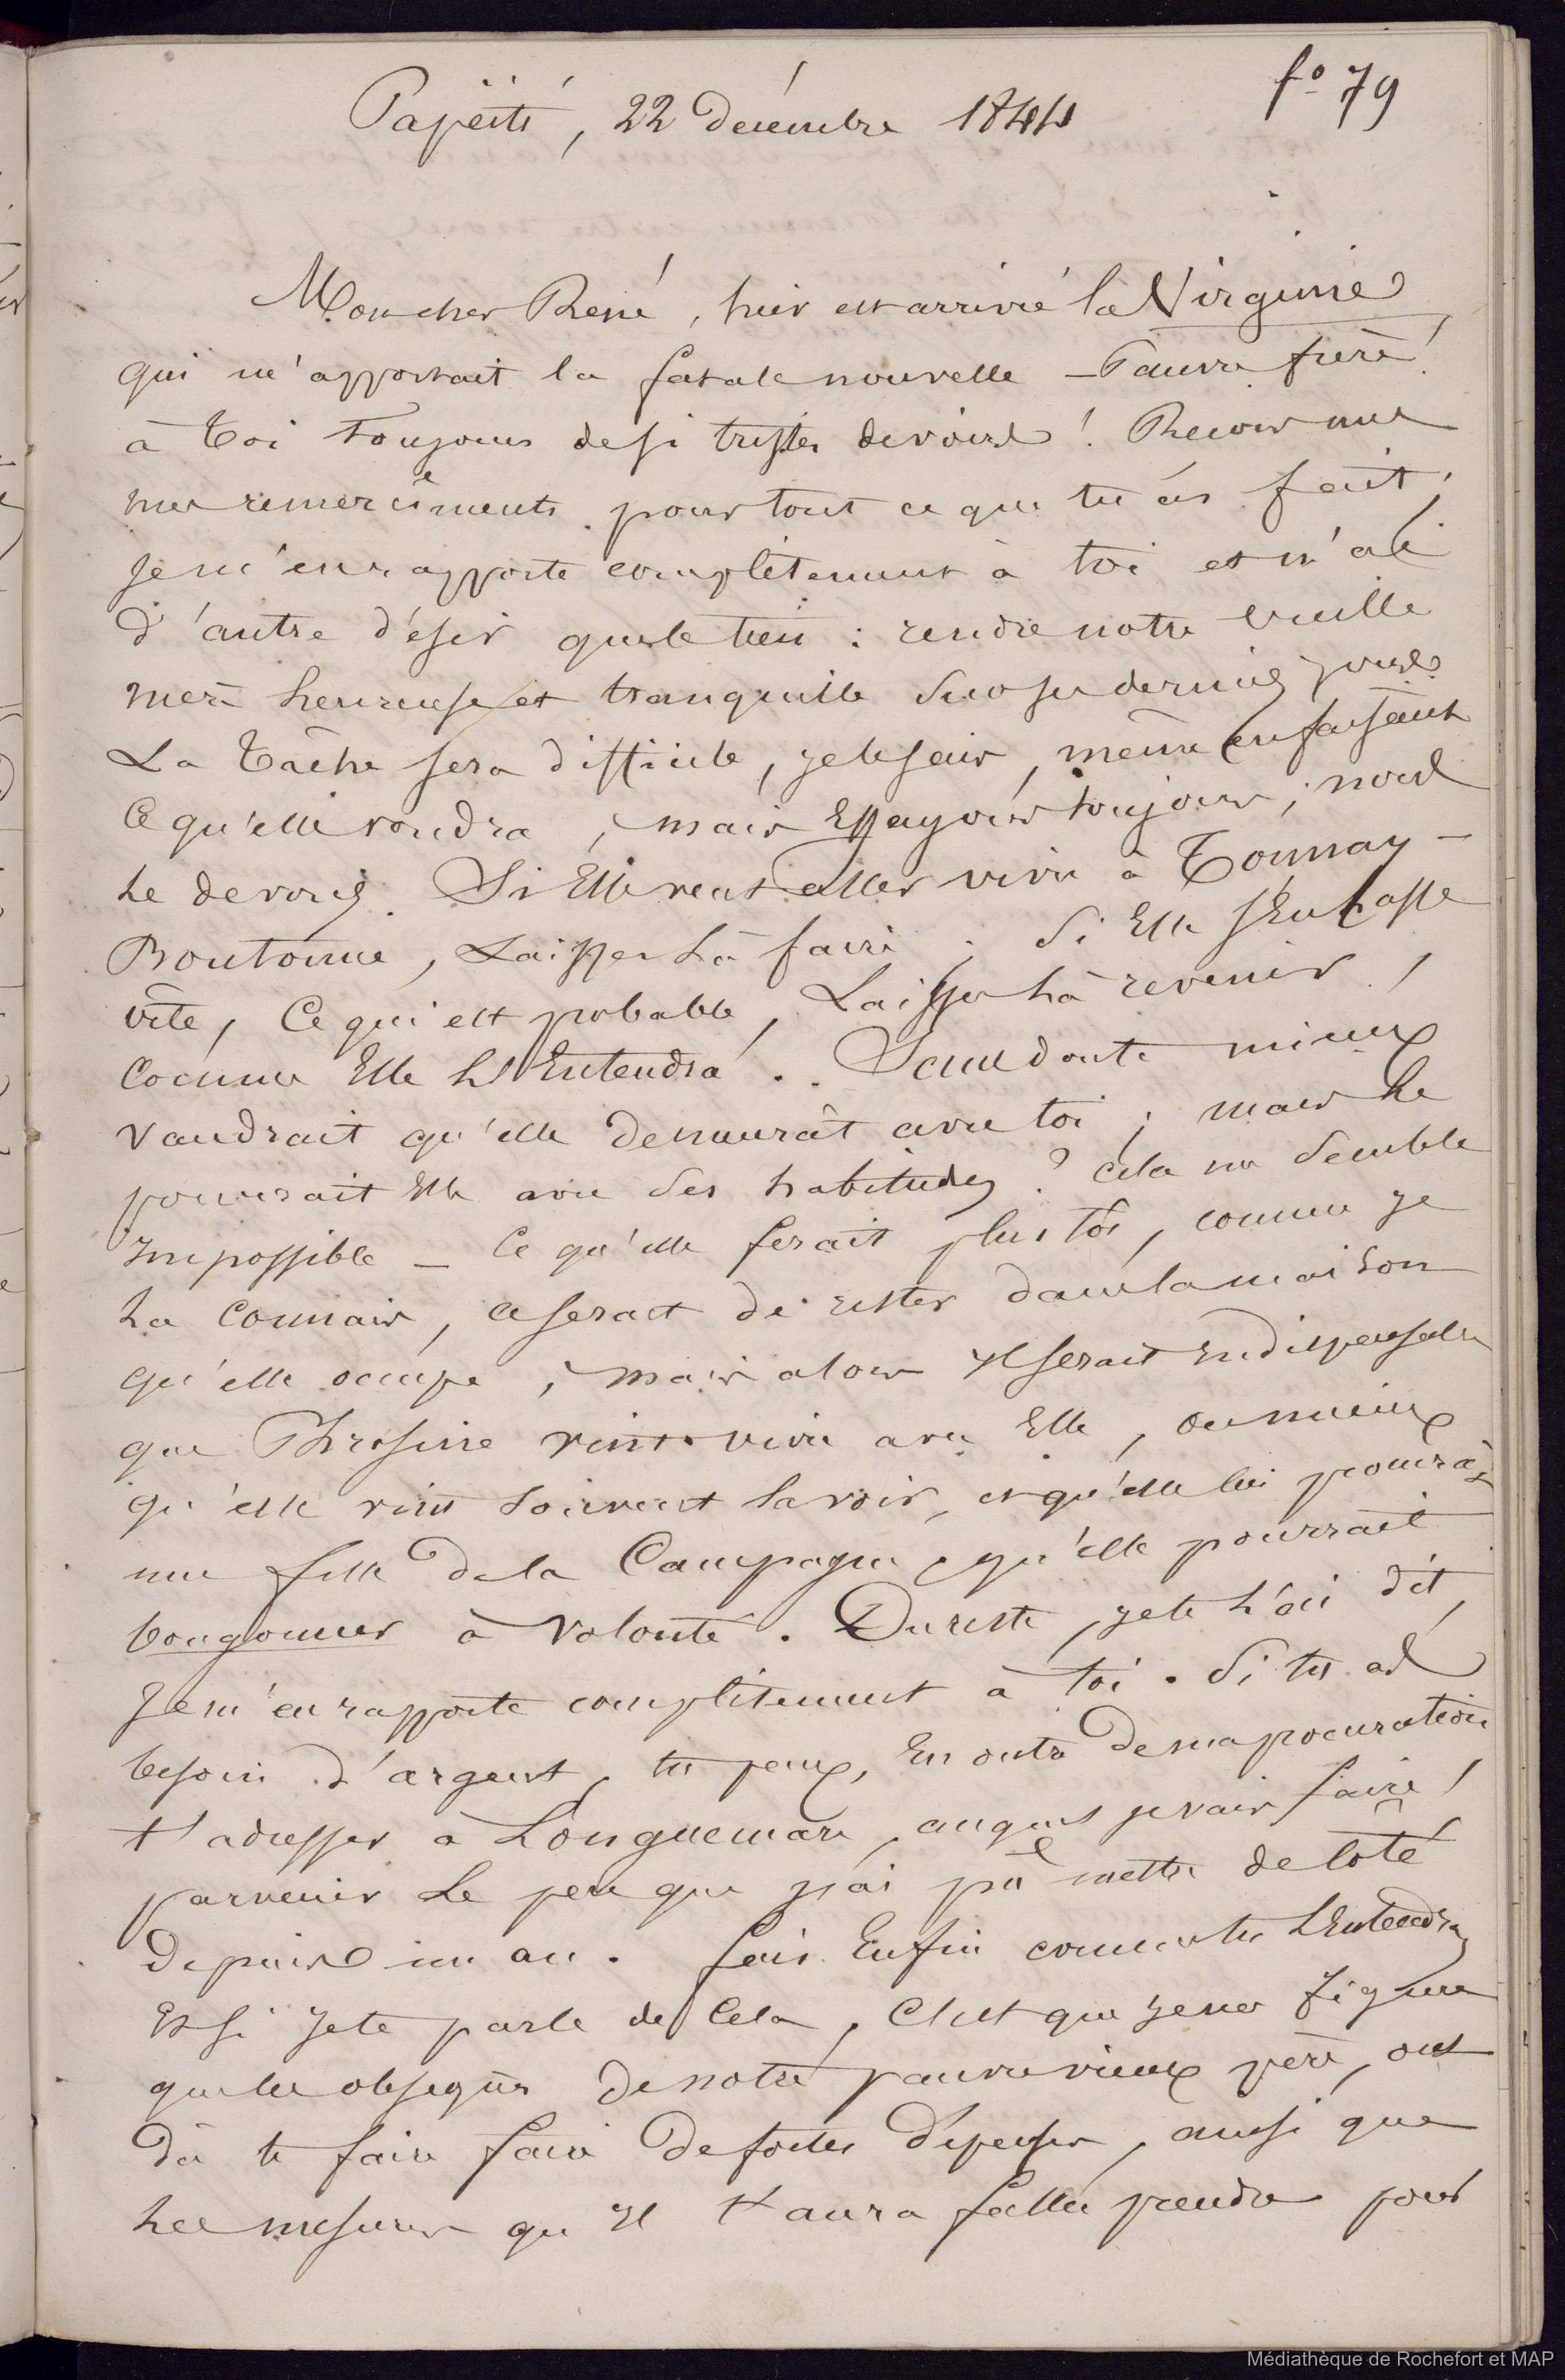 fo 79
Papéïti, 22 Décembre 1844
Mon cher René, hier est arrivé la Virginie
qui m'apportait la fatale nouvelle _ Pauvre frère!
à toi toujours de si tristes devoirs! Recois mes
mes remerciements pour tout ce que tu as fait;
je m'en rapporte complètement à toi et n'ai
d'autre désir que le tien : rendre notre vieille
mère heureuse et tranquille sur ses derniers jours.
La tâche sera difficile, je le sais, même en faisant
ce qu'elle voudra, mais Essayons toujours; nous
le devons. Si Elle veut aller vivre à Tonnay-
Boutonne, Laisses La faire; Si Elle s'En lasse
vite, Ce qui est probable, Laisses la revenir,
Comme Elle L'Entendra. Sans doute mieux
vaudrait qu'elle demeurât avec toi; mais le
pourrait Elle avec ses habitudes? cela me semble
Impossible _ Ce qu'elle ferait plus tôt, comme je
la Connais, ce serait de rester dans la maison
qu'elle occupe, mais alors il serait indispensable
que Phrosine vint vivre avec Elle, ou mieux
qu'elle vint souvent la voir, et qu'elle lui procurât
une fille de la Campagne, qu'elle pourrait
bougonner à volonté. Du reste, je te l'ai dit,
Je m'en rapporte complètement à toi. Si tu as
besoin d'argent, tu peux, En outre de ma procuration
t'adresser à Longuemare, auquel je vais faire
parvenir Le peu que j'ai pu mettre de côté
depuis un an. fais Enfin comme tu L'Entendras
Et si je te parle de Cela, C'est que je me figure
que les obsèques de notre pauvre vieux père, ont
dû te faire faire de fortes dépenses, ainsi que
les mesures qu'il t'aura fallu prendre pour
Médiathèque de Rochefort et MAP